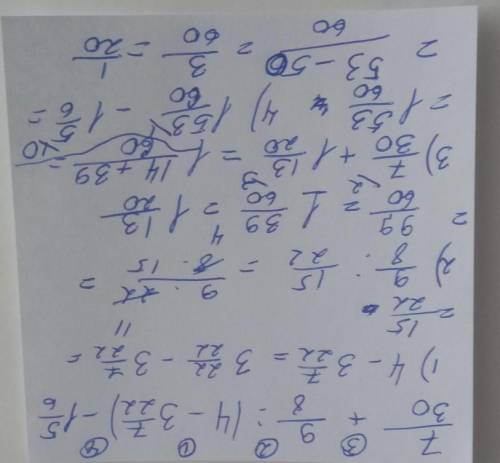 ③ ② ① ④
7/30 + 9/8 : (4 - 3 7/22) - 1 5/6
1) 4 - 3 7/22 = 3 22/22 - 3 7/22 =
= 15/22
2) 9/8 : 15/22 = 9 · 22/8 · 15 =
11
4
= 99/60 = 1 39/60 = 1 13/20
3) 7/30 + 1 13/20 = 1 14 + 39/60 =
= 1 53/60 4) 1 53/60 - 1 5/6 =
= 53 - 50/60 = 3/60 = 1/20